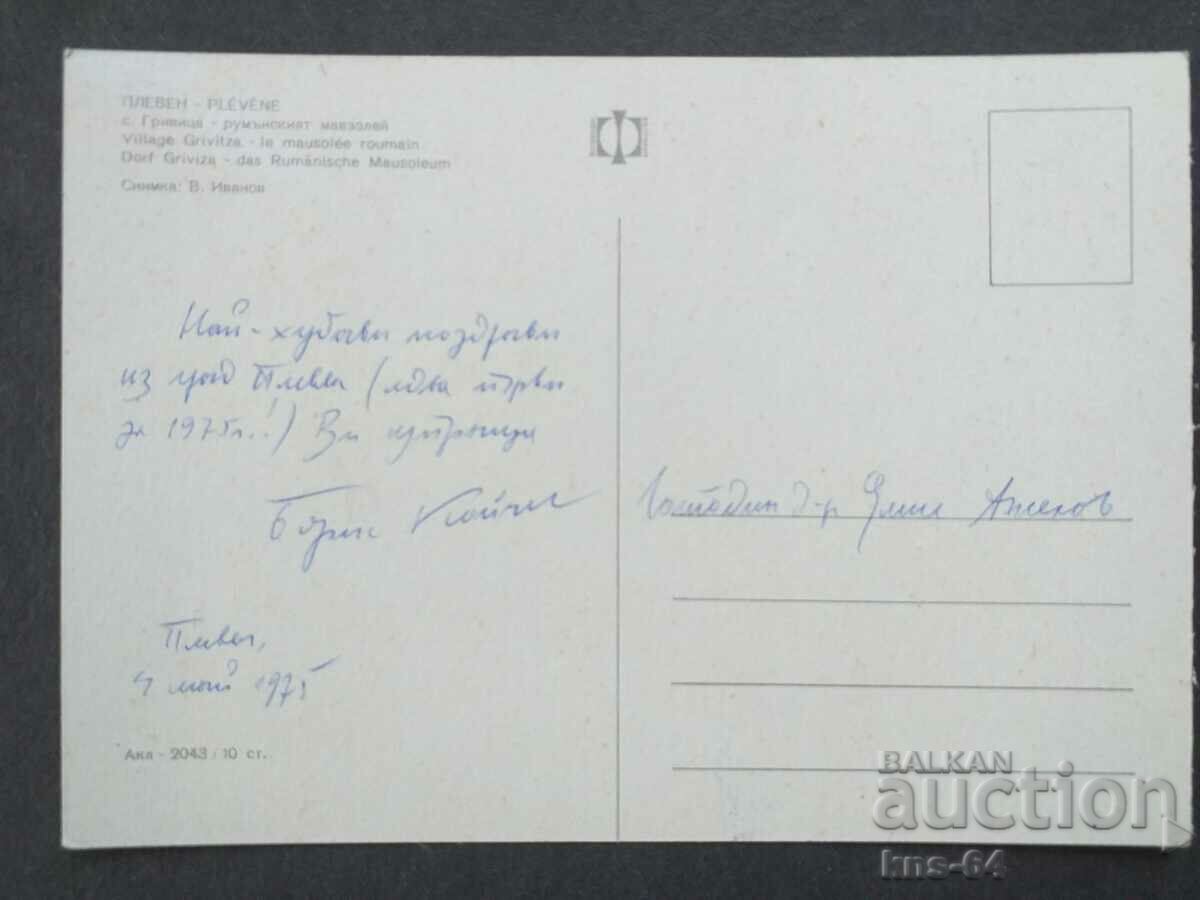 ПЛЕВЕН - PLÉVÈNE
с. Гривица - румънският мавзолей
Village Grivitza - le mausolée roumain
Dorf Griviza - das Rumänische Mausoleum
Снимка: В. Иванов
Най-хубави поздрави
из град Плевен (едва първи
за 1975г.!) Ви изпраща
Борис
Плевен,
4 май 1975
Акл - 2043 / 10 ст.
Господин д-р Емил
BALKAN
auction
kns-64